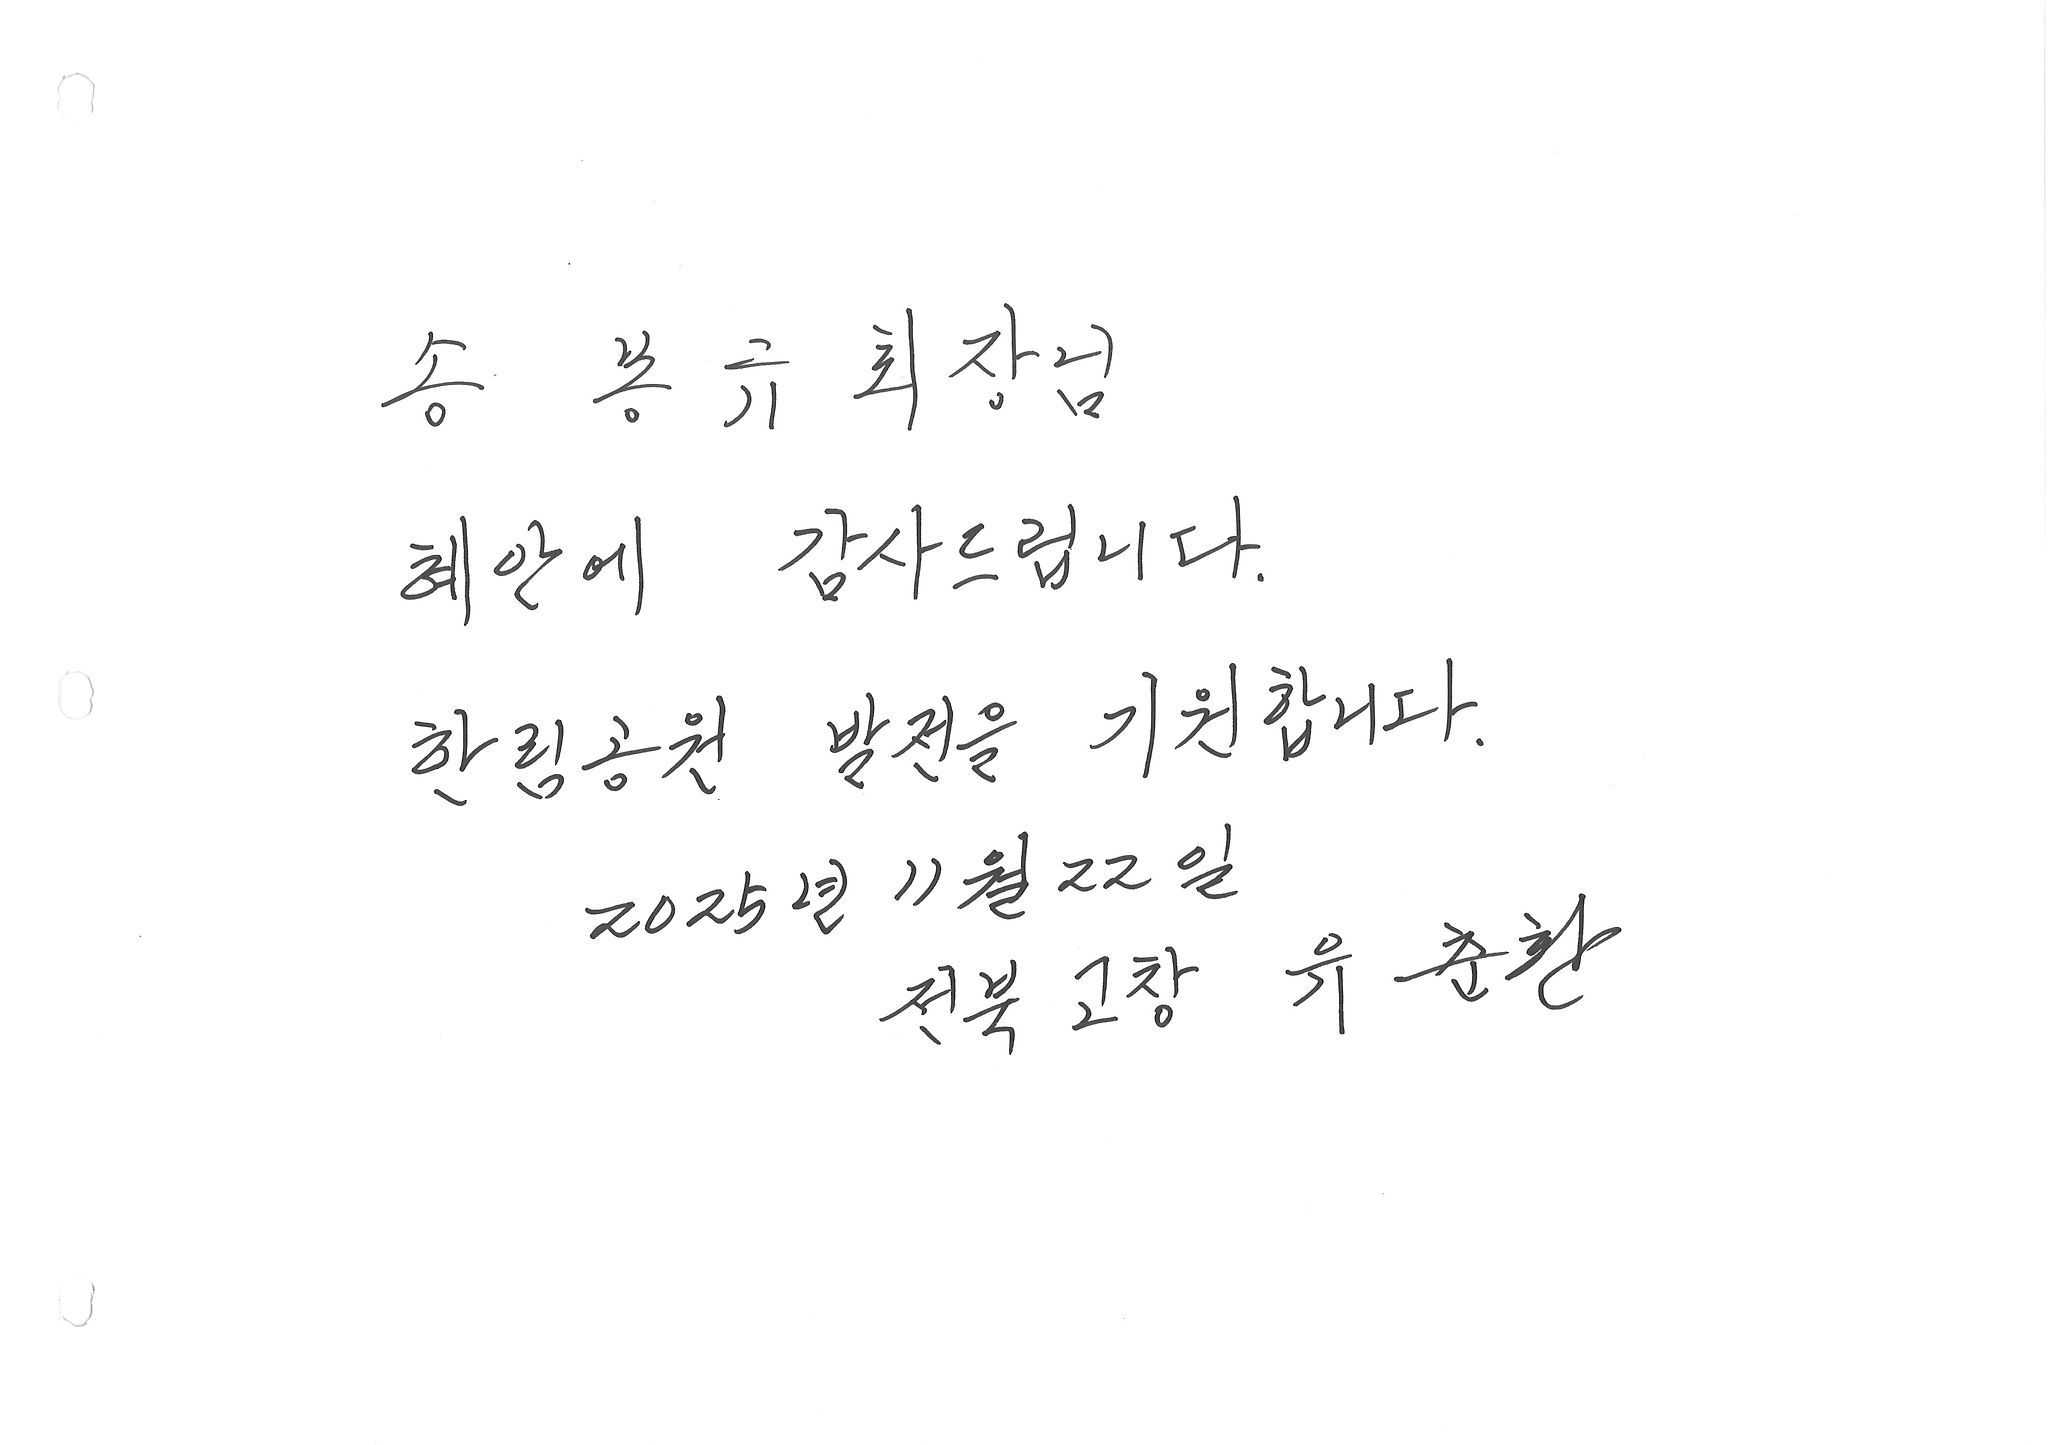 송 봉규 회장님
혜안에 감사드립니다.
한림공원 발전을 기원합니다.
2025년 11월 22일
전북 고창 유춘환